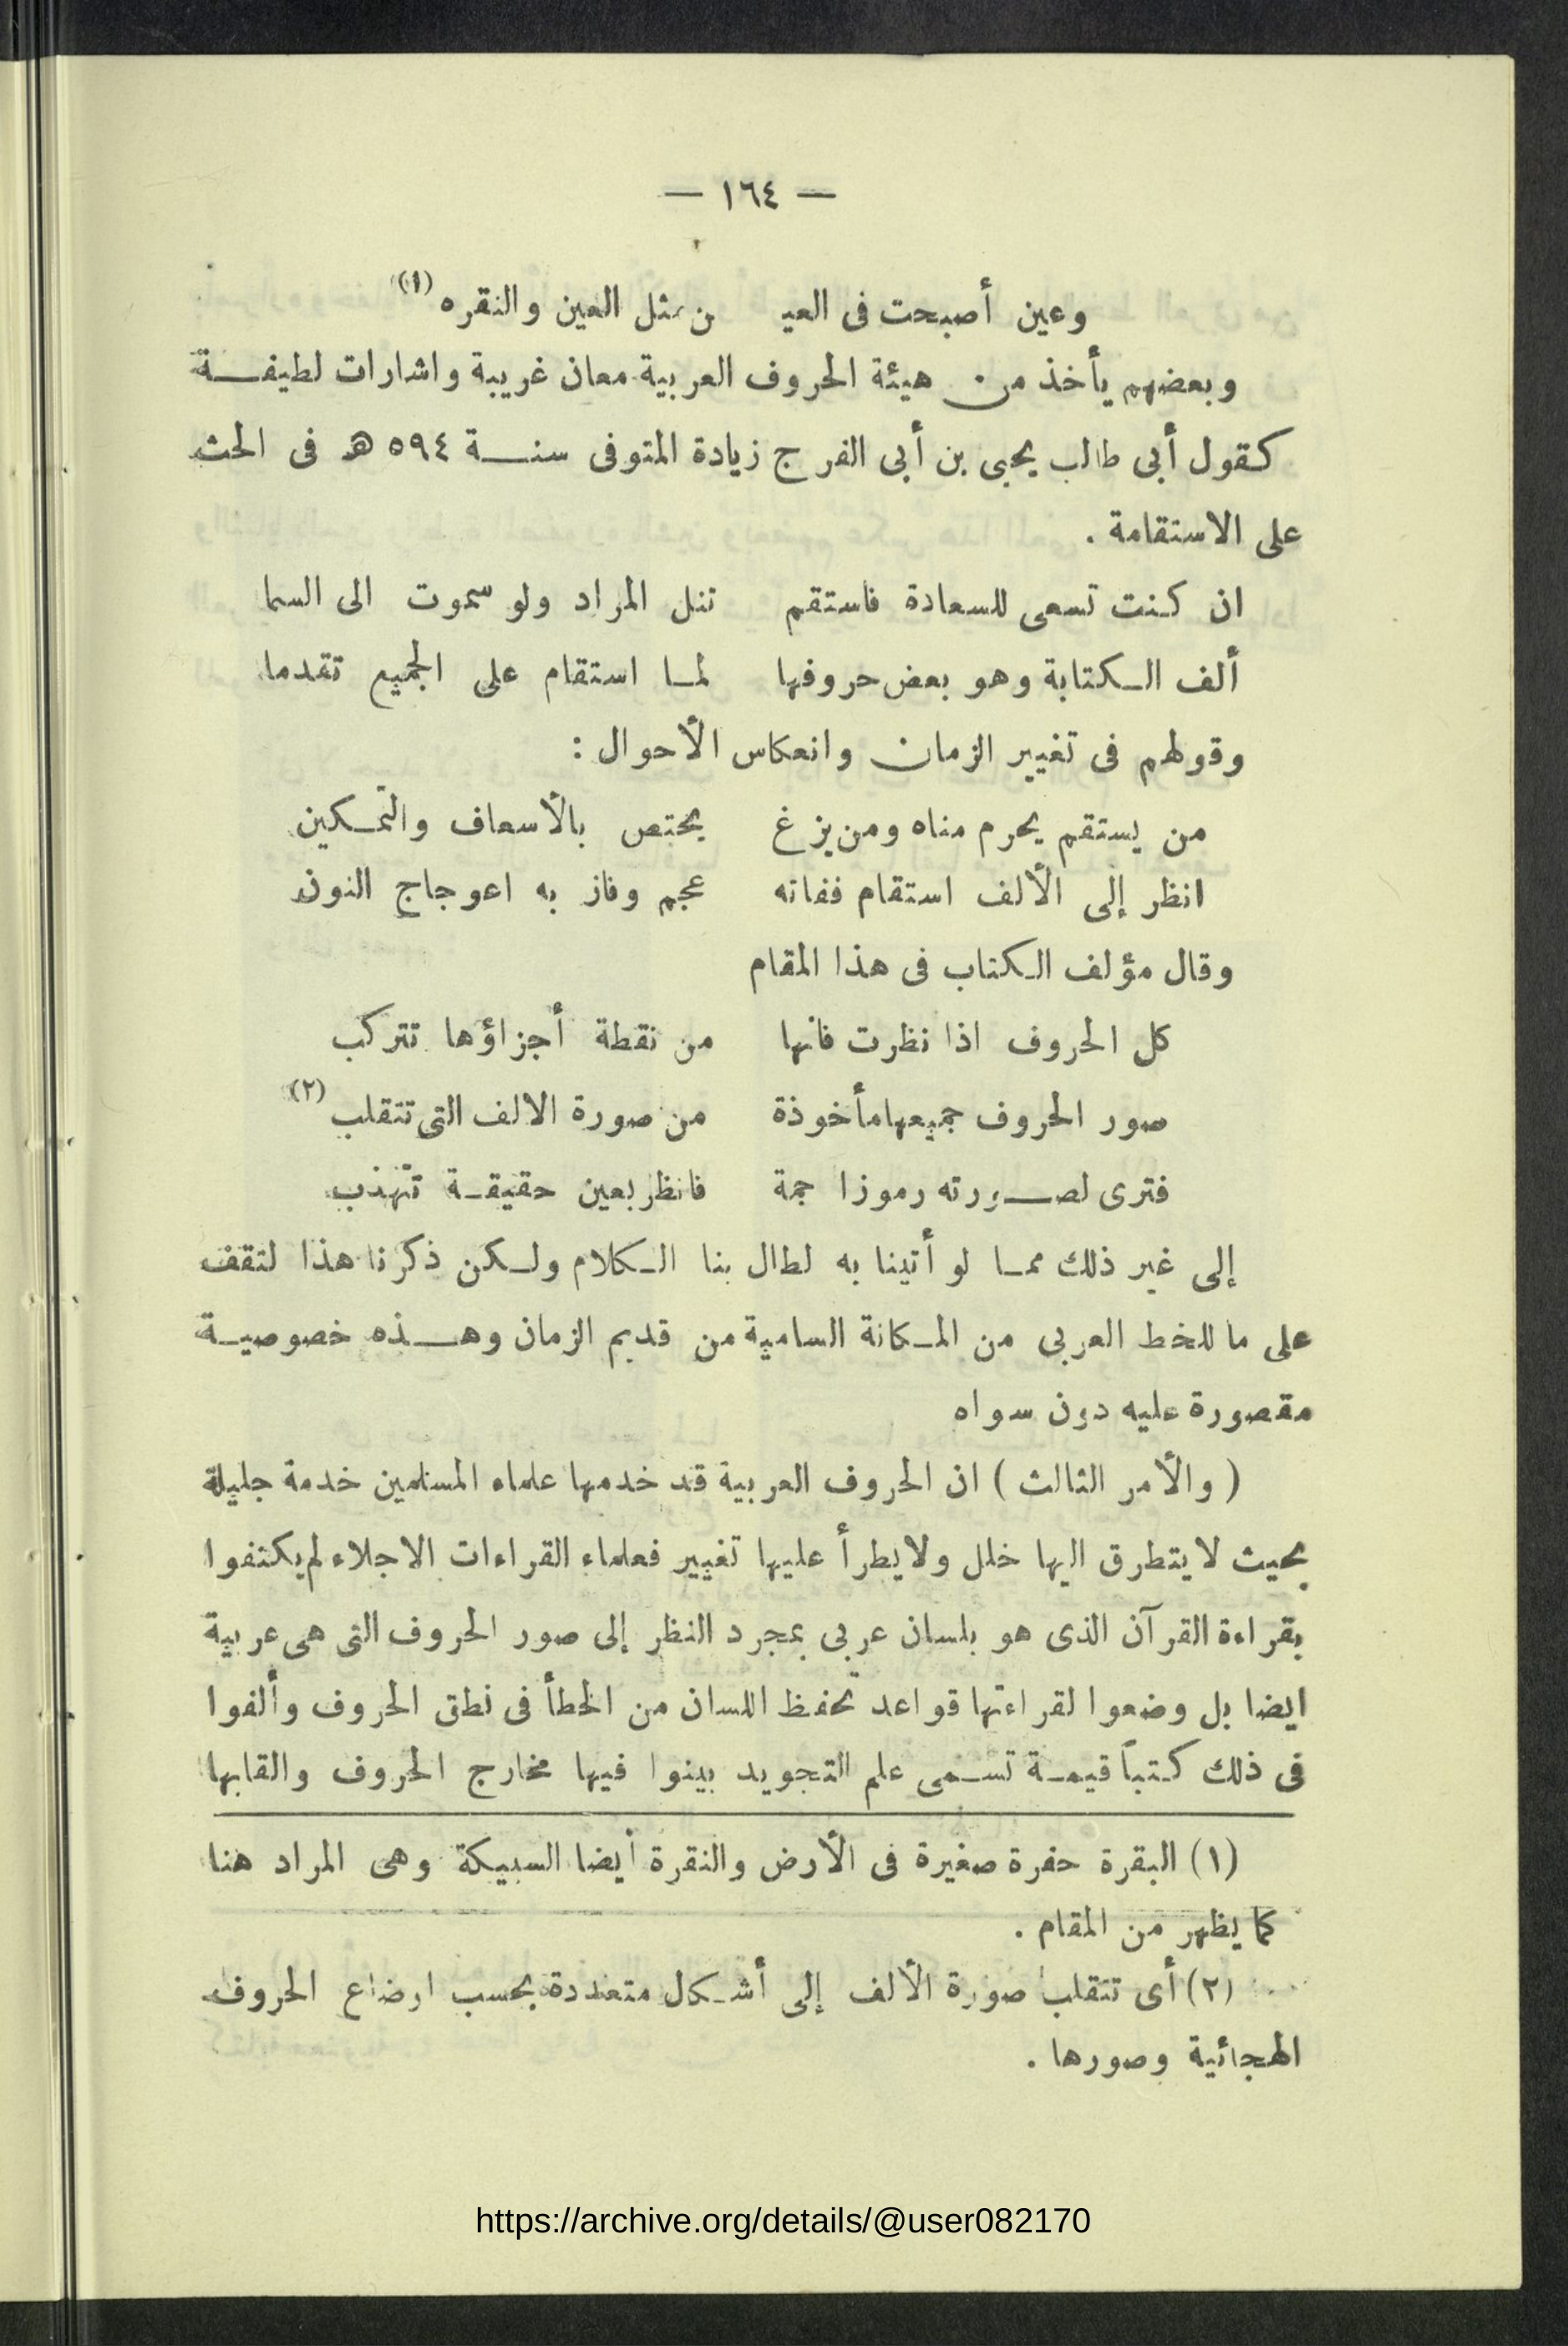 — ١٦٤ —
وعين أصبحت فى العيـ ن مثل العين والنقره (١)
وبعضهم يأخذ من هيئة الحروف العربية معان غريبة واشارات لطيفة
كقول أبى طالب يحيى بن أبى الفرج زيادة المتوفى سنة ٥٩٤ هـ فى الحث
على الاستقامة .
ان كنت تسعى للسعادة فاستقم تنل المراد ولو سموت الى السما
ألف الكتابة وهو بعض حروفها لما استقام على الجميع تقدما
وقولهم فى تغيير الزمان وانعكاس الأحوال :
من يستقم يحرم مناه ومن يزغ يختص بالأسعاف والتمكين
انظر إلى الألف استقام ففاته عجم وفاز به اعوجاج النون
وقال مؤلف الكتاب فى هذا المقام
كل الحروف اذا نظرت فانها من نقطة أجزاؤها تتركب
صور الحروف جميعها مأخوذة من صورة الالف التى تتقلب (٢)
فترى لصورته رموزا جمة فانظر بعين حقيقة تهذب
إلى غير ذلك مما لو أتينا به لطال بنا الكلام ولكن ذكرنا هذا لنقف
على ما للخط العربى من المكانة السامية من قديم الزمان وهذه خصوصية
مقصورة عليه دون سواه
( والأمر الثالث ) ان الحروف العربية قد خدمها علماء المسلمين خدمة جليلة
بحيث لا يتطرق اليها خلل ولا يطرأ عليها تغيير فعلماء القراءات الاجلاء لم يكتفوا
بقراءة القرآن الذى هو بلسان عربى بمجرد النظر إلى صور الحروف التى هى عربية
ايضا بل وضعوا لقراءتها قواعد تحفظ اللسان من الخطأ فى نطق الحروف وألفوا
فى ذلك كتباً قيمة تسمى علم التجويد بينوا فيها مخارج الحروف والقابها
(١) البقرة حفرة صغيرة فى الأرض والنقرة أيضا السبيكة وهى المراد هنا
كما يظهر من المقام .
(٢) أى تتقلب صورة الألف إلى أشكال متعددة بحسب اوضاع الحروف
الهجائية وصورها .
https://archive.org/details/@user082170